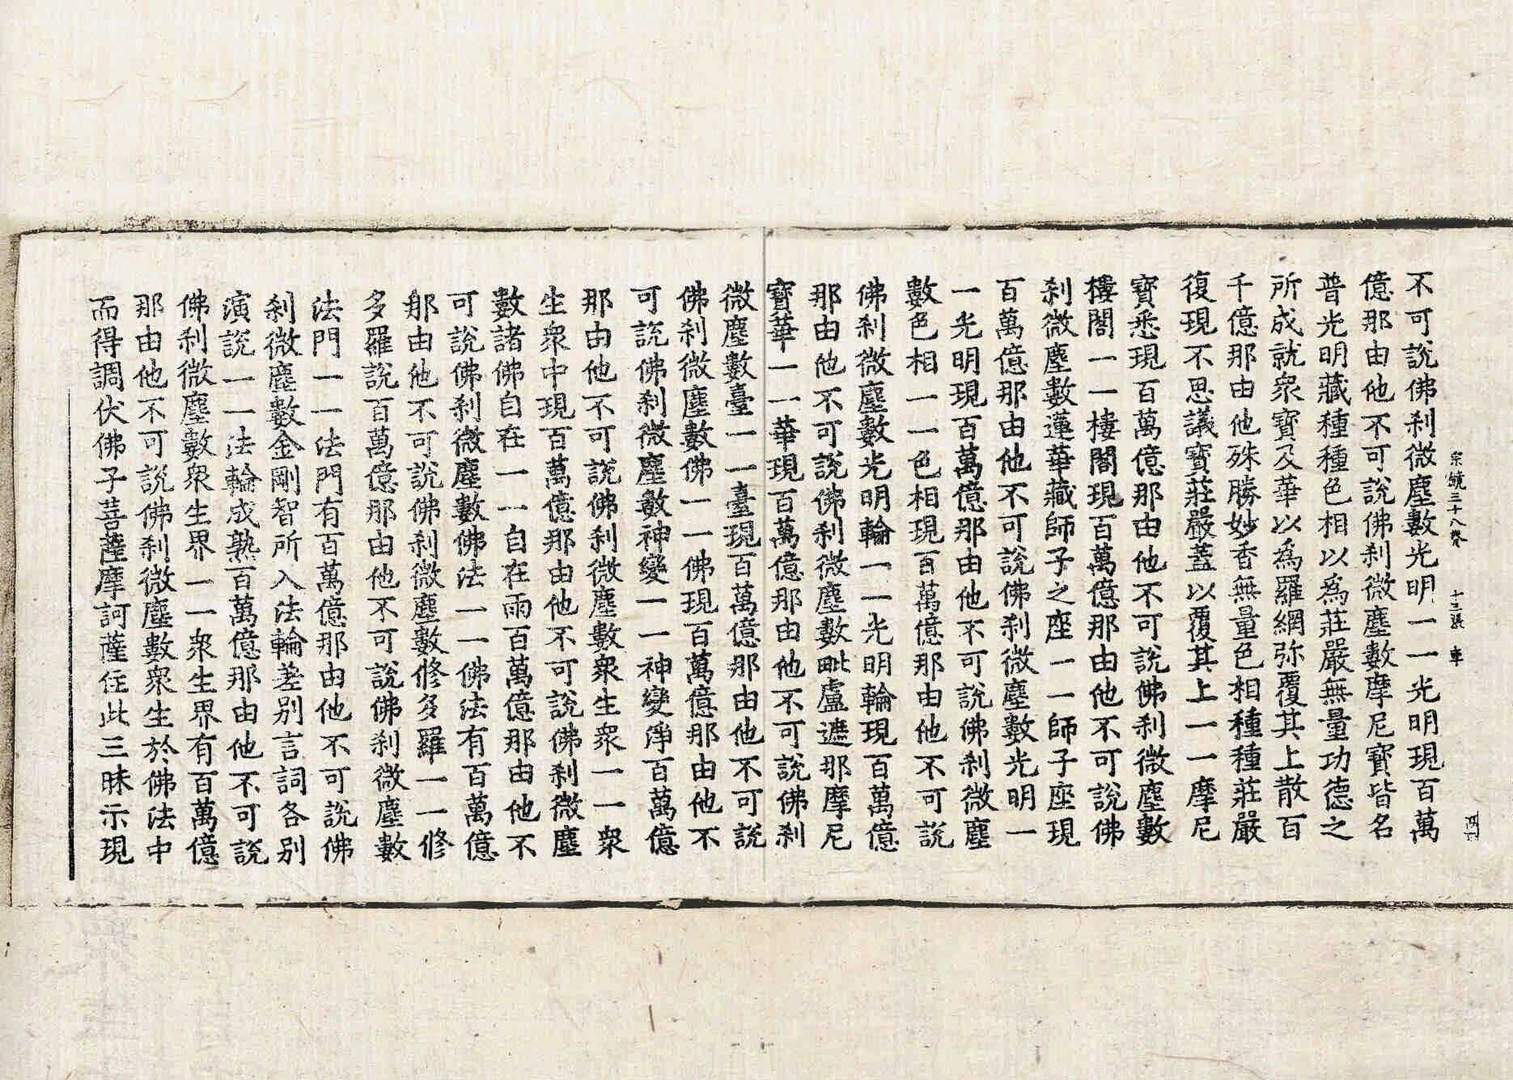 宗鏡三十八卷 十三張 車
不可說佛刹微塵數光明一一光明現百萬
億那由他不可說佛刹微塵數摩尼寶皆名
普光明藏種種色相以為莊嚴無量功德之
所成就衆寶及華以為羅網弥覆其上散百
千億那由他殊勝妙香無量色相種種莊嚴
復現不思議寶莊嚴蓋以覆其上一一摩尼
寶悉現百萬億那由他不可說佛刹微塵數
樓閣一一樓閣現百萬億那由他不可說佛
刹微塵數蓮華藏師子之座一一師子座現
百萬億那由他不可說佛刹微塵數光明一
一光明現百萬億那由他不可說佛刹微塵
數色相一一色相現百萬億那由他不可說
佛刹微塵數光明輪一一光明輪現百萬億
那由他不可說佛刹微塵數毗盧遮那摩尼
寶華一一華現百萬億那由他不可說佛刹
微塵數臺一一臺現百萬億那由他不可說
佛刹微塵數佛一一佛現百萬億那由他不
可說佛刹微塵數神變一一神變淨百萬億
那由他不可說佛刹微塵數衆生衆一一衆
生衆中現百萬億那由他不可說佛刹微塵
數諸佛自在一一自在雨百萬億那由他不
可說佛刹微塵數佛法一一佛法有百萬億
那由他不可說佛刹微塵數修多羅一一修
多羅說百萬億那由他不可說佛刹微塵數
法門一一法門有百萬億那由他不可說佛
刹微塵數金剛智所入法輪差別言詞各別
演說一一法輪成熟百萬億那由他不可說
佛刹微塵數衆生界一一衆生界有百萬億
那由他不可說佛刹微塵數衆生於佛法中
而得調伏佛子菩薩摩訶薩住此三昧示現